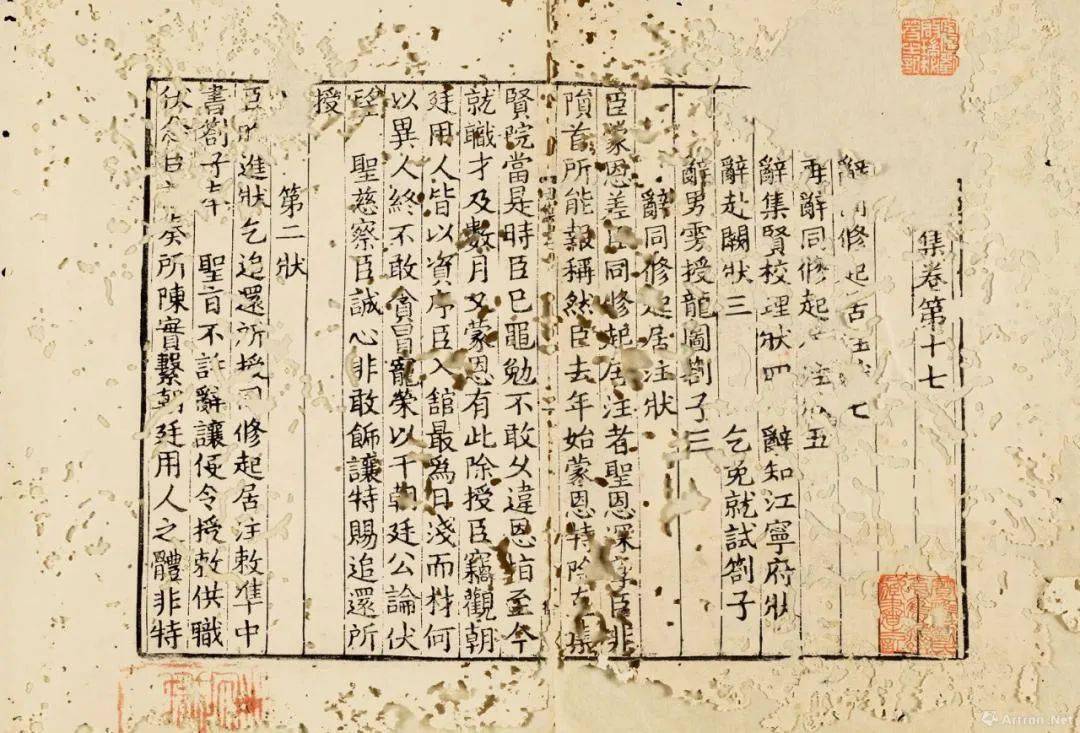 集卷第十七
辭修起居注七
再辭同修起注五
辭集賢校理狀四　辭知江寧府狀
辭赴闕狀三　乞免就試劄子
辭男雱授龍圖劄子三
辭同修起居注狀
臣蒙恩差臣同修起居注者聖恩深厚臣非
隕首所能報稱然臣去年始蒙恩特除直集
賢院當是時臣已黽勉不敢久違恩指至今
就職才及數月又蒙恩有此除授臣竊觀朝
廷用人皆以資序臣入舘最為日淺而材何
以異人終不敢貪冒寵榮以干朝廷公論伏
望　聖慈察臣誠心非敢飾讓特賜追還所
授
第二狀
臣進狀乞追還所授同修起居注敕準中
書劄子奉　聖旨不許辭讓便令授敕供職
伏念臣所陳實繫朝廷用人之體非特
Artron.Net